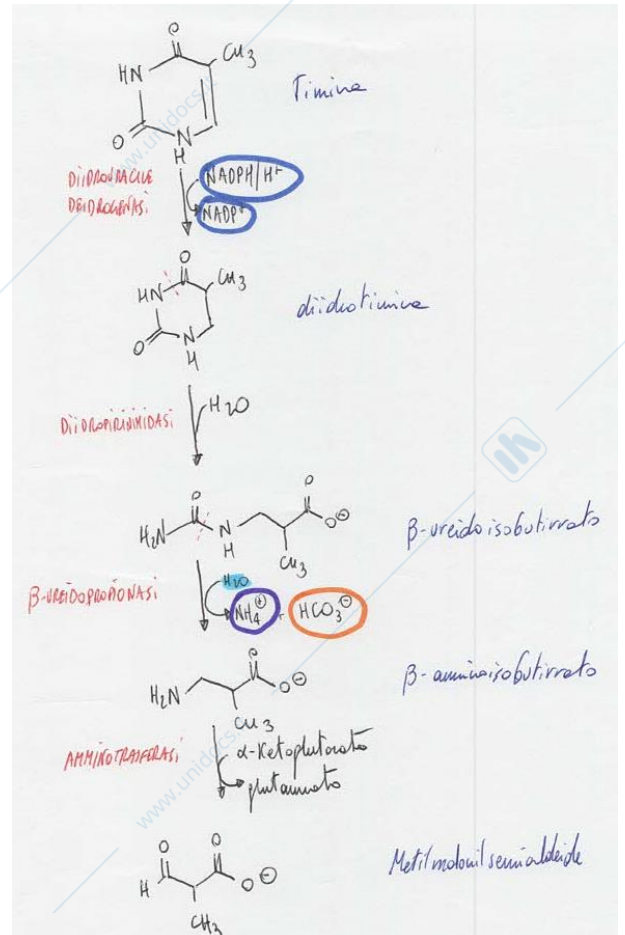 O
CH3
HN
Timina
O
N
H
DIIDROURACILE
DEIDROGENASI
NADPH/H+
NADP+
www.unidocs.
O
HN
CH3
diidrotimina
O
N
H
H2O
DIIDROPIRIMIDASI
O
O
H2N
N
H
O⊖
CH3
β-ureidoisobutirrato
β-UREIDOPROPIONASI
H2O
NH4⊕ + HCO3⊖
O
H2N
O⊖
CH3
β-amminoisobutirrato
AMMINOTRASFERASI
α-Ketoglutarato
glutammato
www.unidocs.
O
O
H
O⊖
CH3
Metilmalonilsemialdeide